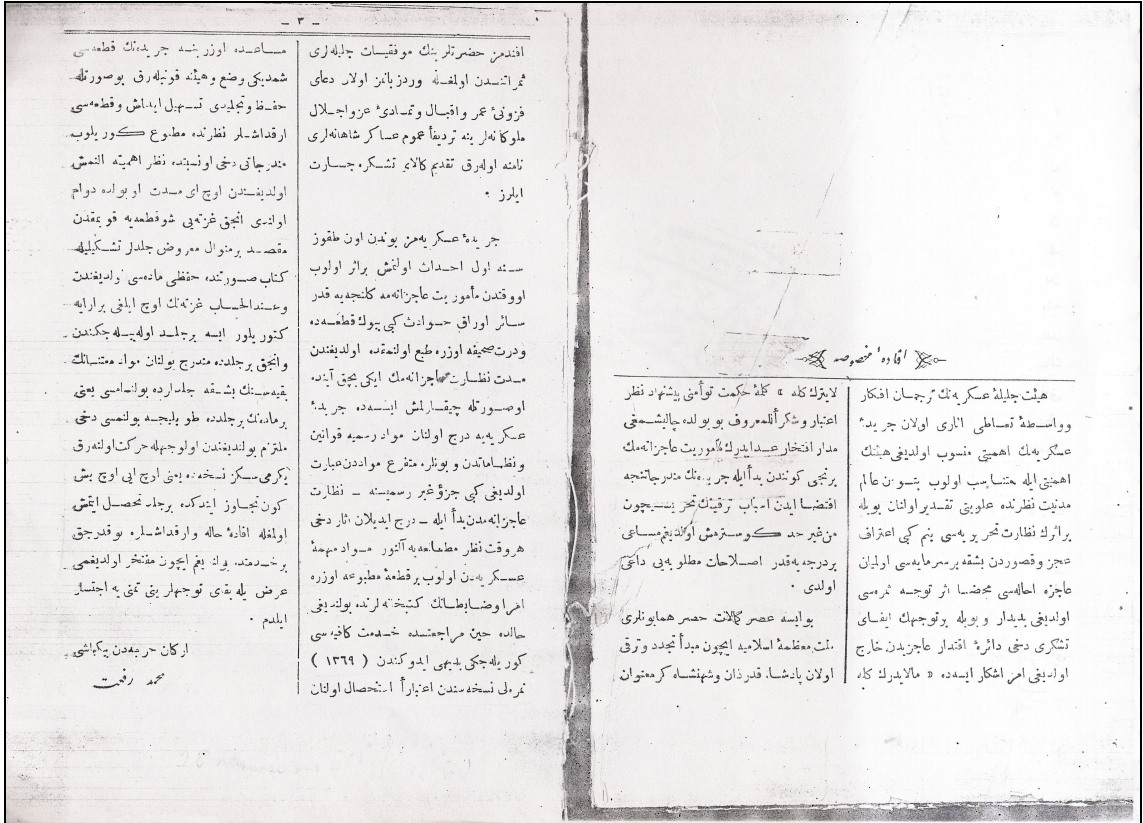 افادهٔ مخصوصه
هیئت جلیلهٔ عسکریه‌نك ترجمان افکار
وواسطهٔ تعاطی آثاری اولان جریدهٔ
عسکریه‌نك اهمیتی منسوب اولدیغی هیئتك
اهمیتی ایله متناسب اولوب بتون عالم
مدنیت نظرنده علویتی تقدیر اولنان بویله
براثرك نظارت تحریریه‌سی بنم کبی اعتراف
عجز وقصوردن بشقه برسرمایه‌سی اولمیان
عاجزه احاله‌سی محضا اثر توجه ثمره‌سی
اولدیغی بدیدار و بویله برتوجهك ایفای
تشکری دخی دائرهٔ اقتدار عاجزیدن خارج
اولدیغی امر آشکار ایسه‌ده « مالایدرك کله
لایترك کله » کلهٔ حکمت توأمنی پیشنهاد نظر
اعتبار وشکرآنلمعروف بو یولده چالیشمغی
مدار افتخار عد ایدرك مأموریت عاجزانه‌مك
برنجی کونندن بدأ ایله جریده‌نك مندرجاتنجه
اقتضا ایدن اسباب ترقینك تحریسیچون
من غیر حد کوسترمش اولدیغم مساعی
بردرجه‌یه قدر اصلاحات مطلوبه‌یی داعی
اولدی .
بو ایسه عصر کمالات حصر همایونلری
ملت معظمهٔ اسلامیه ایچون مبدأ تجدد وترقی
اولان پادشاه قدردان وشهنشاه کرمعنوان
— ٣ —
افندمز حضرتلرینك موفقیات جلیله‌لری
ثمراتندن اولمغله وردزبانمز اولان دعای
فزونیٔ عمر واقبال وتمادیٔ عزواجلال
ملوکانه‌لرینه تردیفاً عموم عساکر شاهانه‌لری
نامنه اوله‌رق تقدیم کالای تشکره جسارت
ایلرز .
جریدهٔ عسکریه‌مز بوندن اون طقوز
سنه اول احداث اولنمش براثر اولوب
اووقتدن مأموریت عاجزانه‌مه کلنجه‌یه قدر
سائر اوراق حوادث کبی بیوك قطعه‌ده
ودرت صحیفه اوزره طبع اولنمقده اولدیغندن
مدت نظارت عاجزانه‌مك ایکی بچق آینده
اوصورتله چیقارلمش ایسه‌ده جریدهٔ
عسکریه‌یه درج اولنان مواد رسمیه قوانین
ونظاماتدن و بونلره متفرع مواددن عبارت
اولدیغی کبی جزؤ غیر رسمیسنه — نظارت
عاجزانه‌مدن بدأ ایله — درج ایدیلان آثار دخی
هر وقت نظر مطالعه‌یه آلنور مواد مهمهٔ
عسکریه‌دن اولوب برقطعهٔ مطبوعه اوزره
امرا وضابطانك کتبخانه‌لرنده بولندیغی
حالده حین مراجعتده خدمت کافیه‌سی
کوریله‌جکی بدیهی ایدوکندن ( ١٣٦٩ )
نمره‌لی نسخه‌سندن اعتباراً استحصال اولنان
مساعده اوزرینه جریده‌نك قطعه‌سی
شمدیکی وضع وهیئته قونیله‌رق بوصورتله
حفظ وتجلیدی تسهیل ایدلمش وقطعه‌سی
ارقداشلر نظرنده مطبوع کوریلوب
مندرجاتی دخی اونسبتده نظر اهمیته النمش
اولدیغندن اوچ ای مدت او یولده دوام
اولندی انجق غزته‌یی شو قطعه‌یه قویمقدن
مقصد برمنوال معروض جلدلر تشکیلیله
کتاب صورتنده حفظی ماده‌سی اولدیغندن
وعندالحساب غزته‌نك اوچ ایلغی برارایه
کتوریلور ایسه برجلد اوله‌بیله‌جکندن
وانجق برجلدده مندرج بولنان مواد معتنانك
بقیه‌سنك بشقه جلدلرده بولنمامسی یعنی
برماده‌نك برجلدده طوپلیجه بولنمسی دخی
ملتزم بولندیغندن اولوجهله حرکت اولنه‌رق
یکرمی سکز نسخه‌ده یعنی اوچ ایی اوچ بش
کون تجاوز ایتدکده برجلد تحصل ایتمش
اولمغله افادهٔ حاله وارقداشلره بوقدرجق
برخدمتده بولندیغم ایچون مفتخر اولدیغمی
عرض ایله بقای توجهلرینی تمنی‌یه اجتسار
ایلدم .
ارکان حربیه‌دن بیکباشی
محمد رفعت